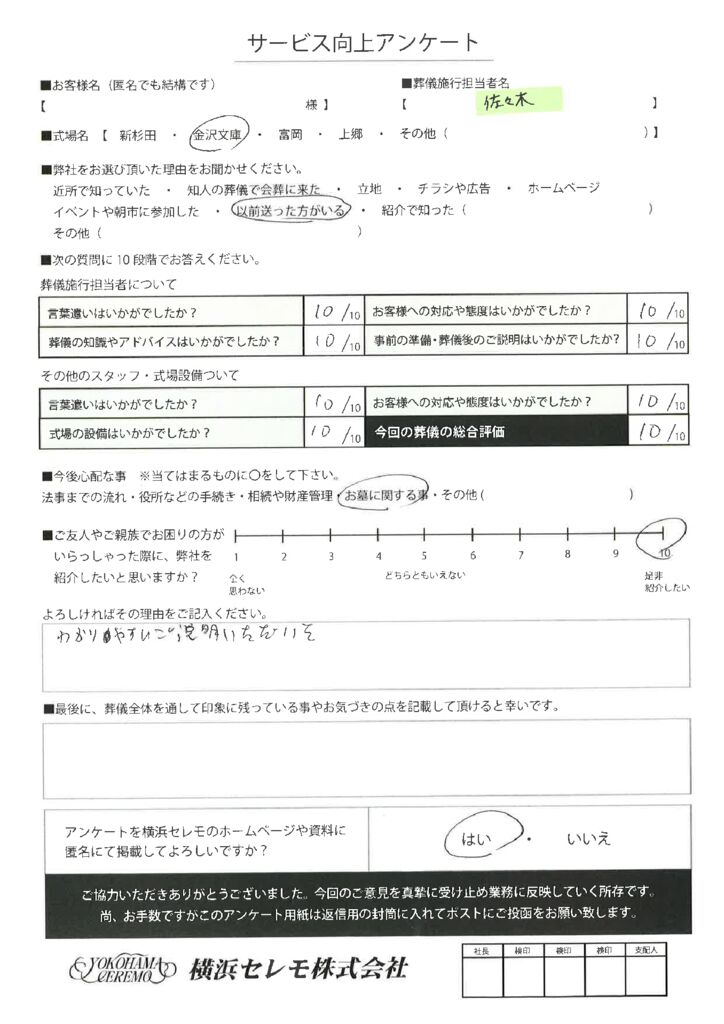 サービス向上アンケート
■お客様名（匿名でも結構です）
【 様 】
■葬儀施行担当者名
【 佐々木 】
■式場名 【 新杉田 ・ 金沢文庫 ・ 富岡 ・ 上郷 ・ その他（ ）】
■弊社をお選び頂いた理由をお聞かせください。
近所で知っていた ・ 知人の葬儀で会葬に来た ・ 立地 ・ チラシや広告 ・ ホームページ
イベントや朝市に参加した ・ 以前送った方がいる ・ 紹介で知った（ ）
その他（ ）
■次の質問に 10 段階でお答えください。
葬儀施行担当者について
言葉遣いはいかがでしたか？ 10 /10 お客様への対応や態度はいかがでしたか？ 10 /10
葬儀の知識やアドバイスはいかがでしたか？ 10 /10 事前の準備・葬儀後のご説明はいかがでしたか？ 10 /10
その他のスタッフ・式場設備ついて
言葉遣いはいかがでしたか？ 10 /10 お客様への対応や態度はいかがでしたか？ 10 /10
式場の設備はいかがでしたか？ 10 /10 今回の葬儀の総合評価 10 /10
■今後心配な事 ※当てはまるものに〇をして下さい。
法事までの流れ・役所などの手続き・相続や財産管理・お墓に関する事・その他（ ）
■ご友人やご親族でお困りの方が
いらっしゃった際に、弊社を
紹介したいと思いますか？
1 2 3 4 5 6 7 8 9 10
全く
思わない
どちらともいえない
是非
紹介したい
よろしければその理由をご記入ください。
わかりやすいご説明いただいた
■最後に、葬儀全体を通して印象に残っている事やお気づきの点を記載して頂けると幸いです。
アンケートを横浜セレモのホームページや資料に
匿名にて掲載してよろしいですか？
はい ・ いいえ
ご協力いただきありがとうございました。今回のご意見を真摯に受け止め業務に反映していく所存です。
尚、お手数ですがこのアンケート用紙は返信用の封筒に入れてポストにご投函をお願い致します。
YOKOHAMA
CEREMO
横浜セレモ株式会社
社長 検印 検印 検印 支配人